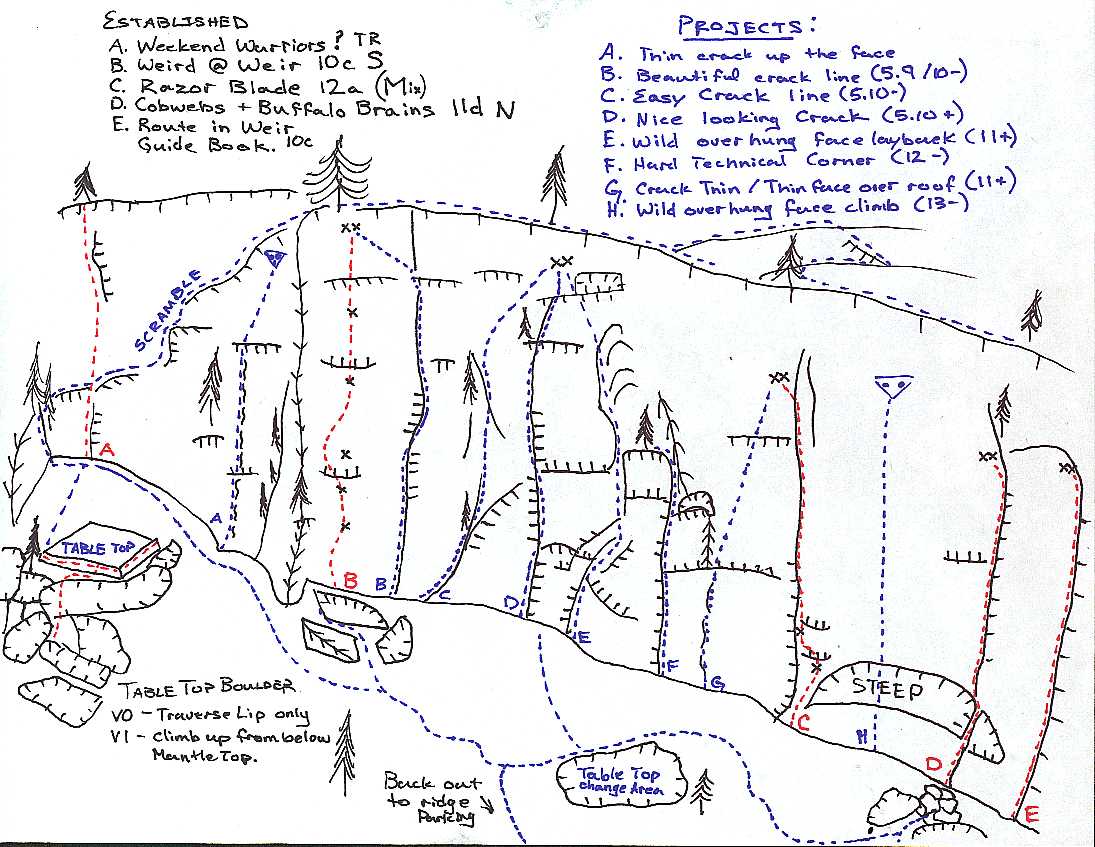 ESTABLISHED
A. Weekend Wurriors? TR
B. Weird @ Weir 10c S
C. Razor Blade 12a (Mix)
D. Cobwebs + Buffalo Brains 11d N
E. Route in Weir
Guide Book. 10c
PROJECTS:
A. Thin crack up the face
B. Beautiful crack line (5.9/10-)
C. Easy Crack line (5.10-)
D. Nice looking Crack (5.10+)
E. Wild overhung face layback (11+)
F. Hard Technical Corner (12-)
G. Crack Thin / Thin face over roof (11+)
H. Wild overhung face climb (13-)
SCRAMBLE
A
A
B
B
C
D
E
F
G
C
H
D
E
STEEP
TABLE TOP
TABLE TOP BOULDER
V0 - Traverse Lip only
V1 - Climb up from below
Mantle Top.
Back out
to ridge
Parking
Table Top
change Area